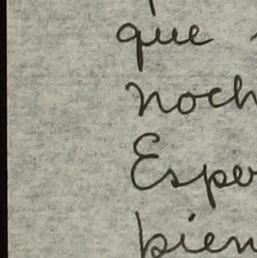 que
noch
Espe
bien